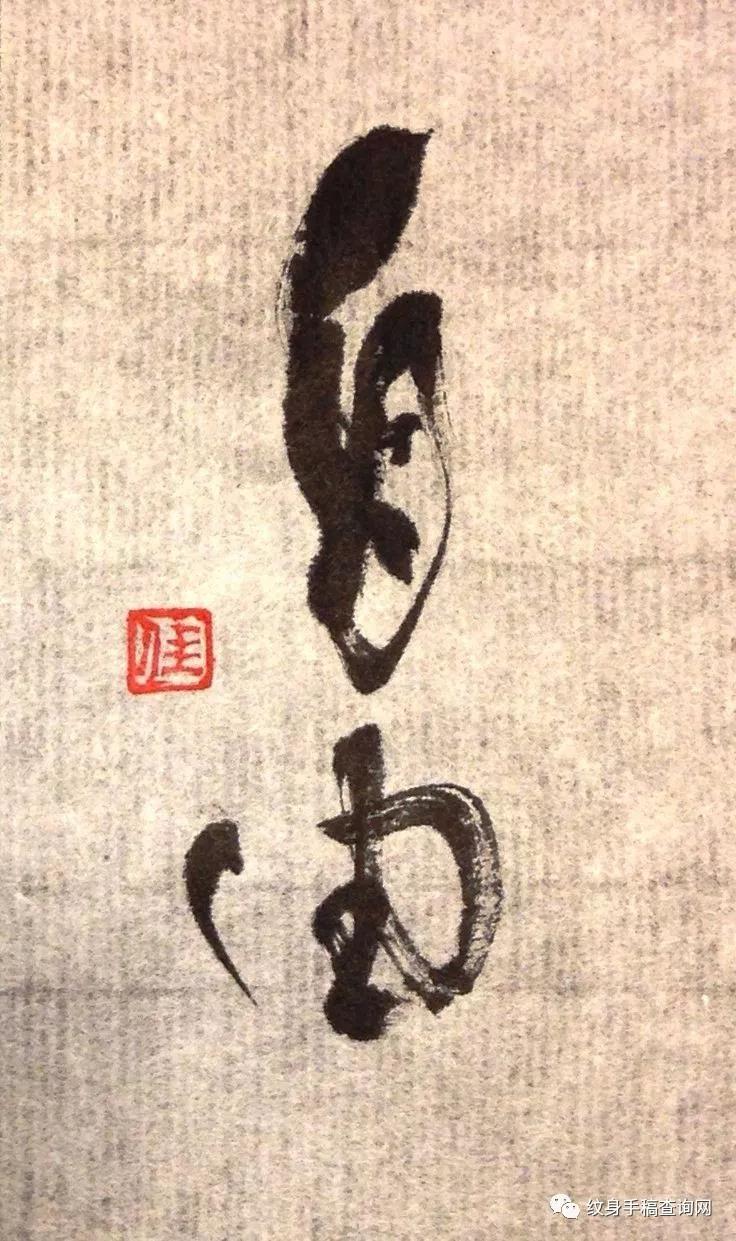 自由
纹身手稿查询网